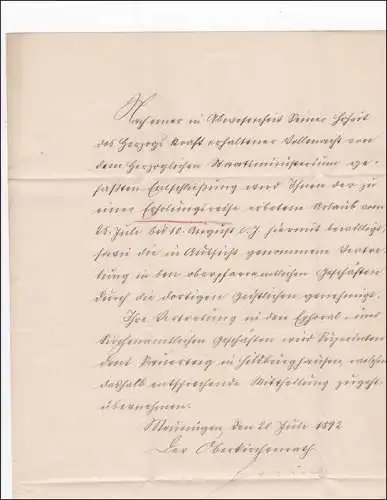 Nach einer in Abwesenheit Seiner Hoheit
des Herzogs kraft erhaltener Vollmacht von
dem Herzoglichen Staatsministerium ge-
faßten Entschließung wird Ihnen der zu
einer Erholungsreise erbetene Urlaub vom
25. Juli bis 10. August l. J. hiermit bewilligt,
sowie die in Aussicht genommene Vertre-
tung in den oberpfarramtlichen Geschäften
durch die dortigen Geistlichen genehmigt.
Ihre Vertretung in den Ephoral- und
Kirchenamtlichen Geschäften wird Superinten-
dent in Hildburghausen, welchem
deshalb entsprechende Mittheilung zugeht,
übernehmen.
Meiningen, den 21. Juli 1892
Der Oberkirchenrath.